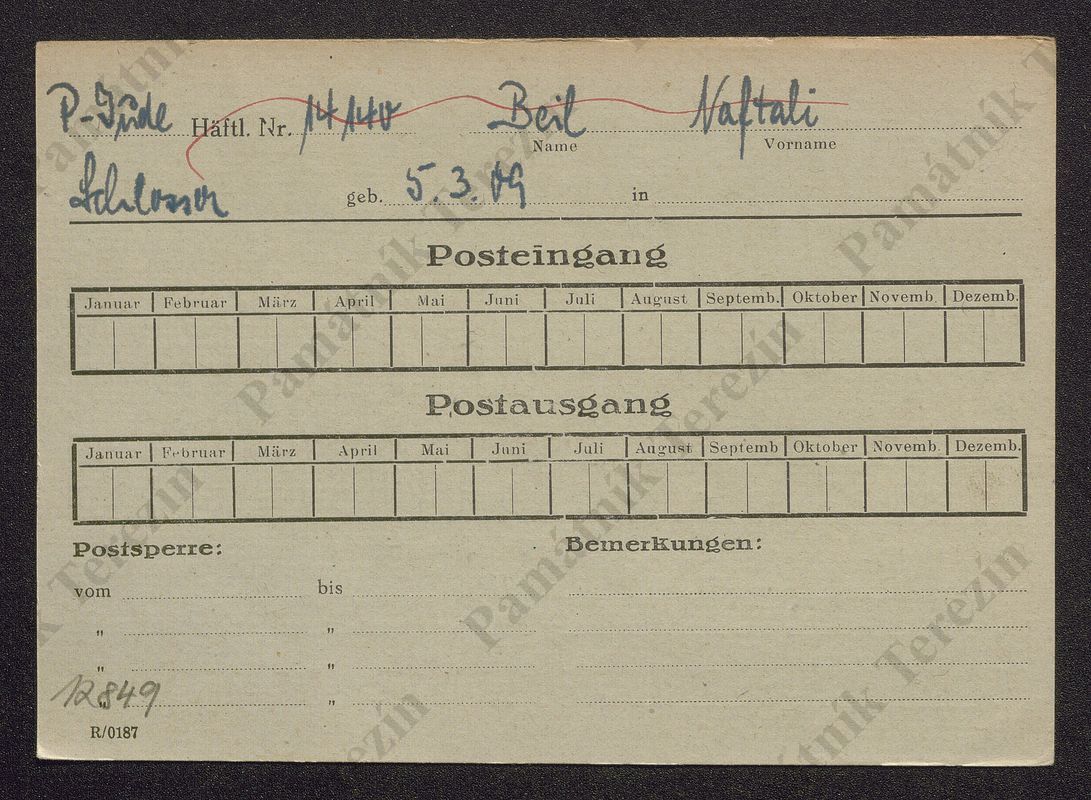 P-Jude Häftl. Nr. 14140 Beil Naftali
Name Vorname
Schlosser geb. 5.3.09 in
Posteingang
Januar Februar März April Mai Juni Juli August Septemb. Oktober Novemb. Dezemb.
Postausgang
Januar Februar März April Mai Juni Juli August Septemb Oktober Novemb. Dezemb.
Postsperre: Bemerkungen:
vom bis
" "
" "
12849 " "
R/0187
Památník Terezín